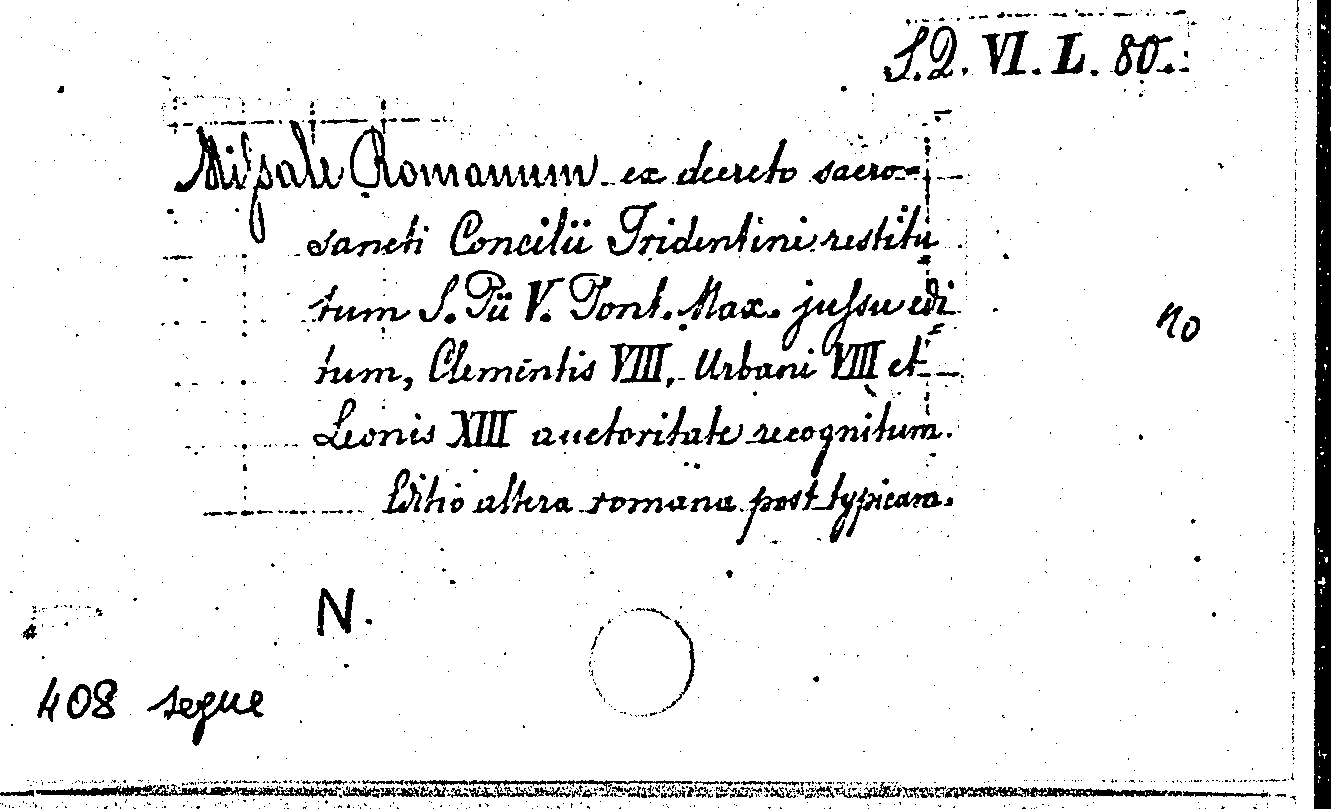 S.Q. VI. L. 80.
Missale Romanum ex decreto sacro-
sancti Concilii Tridentini restitu
tum S. Pii V. Pont. Max. jussu edi
no
tum, Clementis VIII, Urbani VIII et
Leonis XIII auctoritate recognitum.
Editio altera romana post typicam.
N.
408 segue